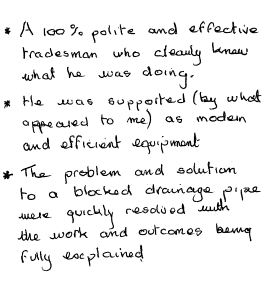 * A 100% polite and effective
tradesman who clearly knew
what he was doing.
* He was supported (by what
appeared to me) as modern
and efficient equipment
* The problem and solution
to a blocked drainage pipe
were quickly resolved with
the work and outcomes being
fully explained